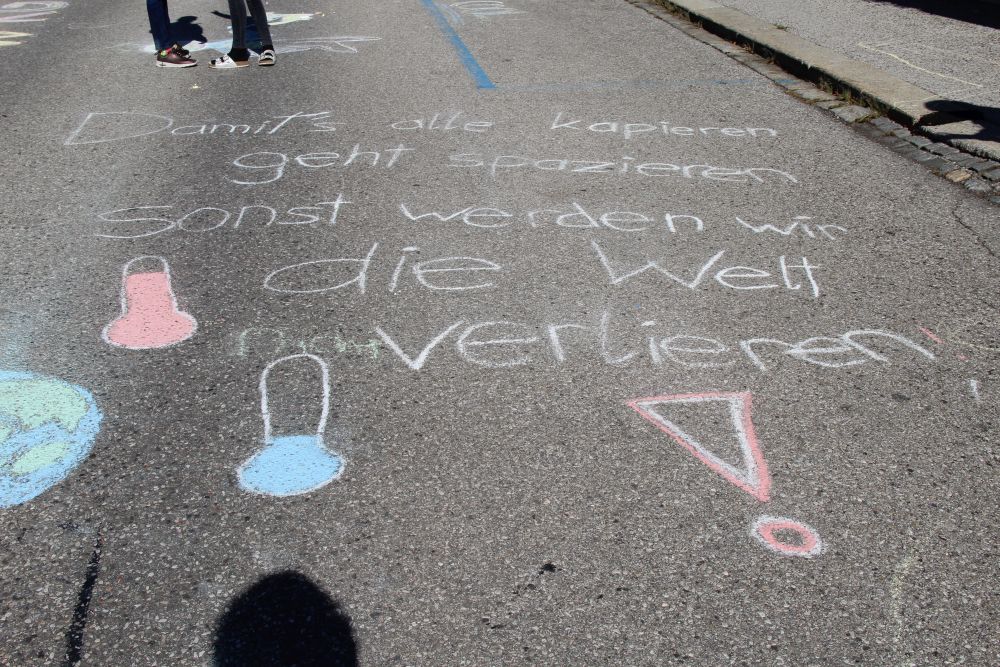 Damit's alle kapieren
geht spazieren
Sonst werden wir
die Welt
nicht verlieren!